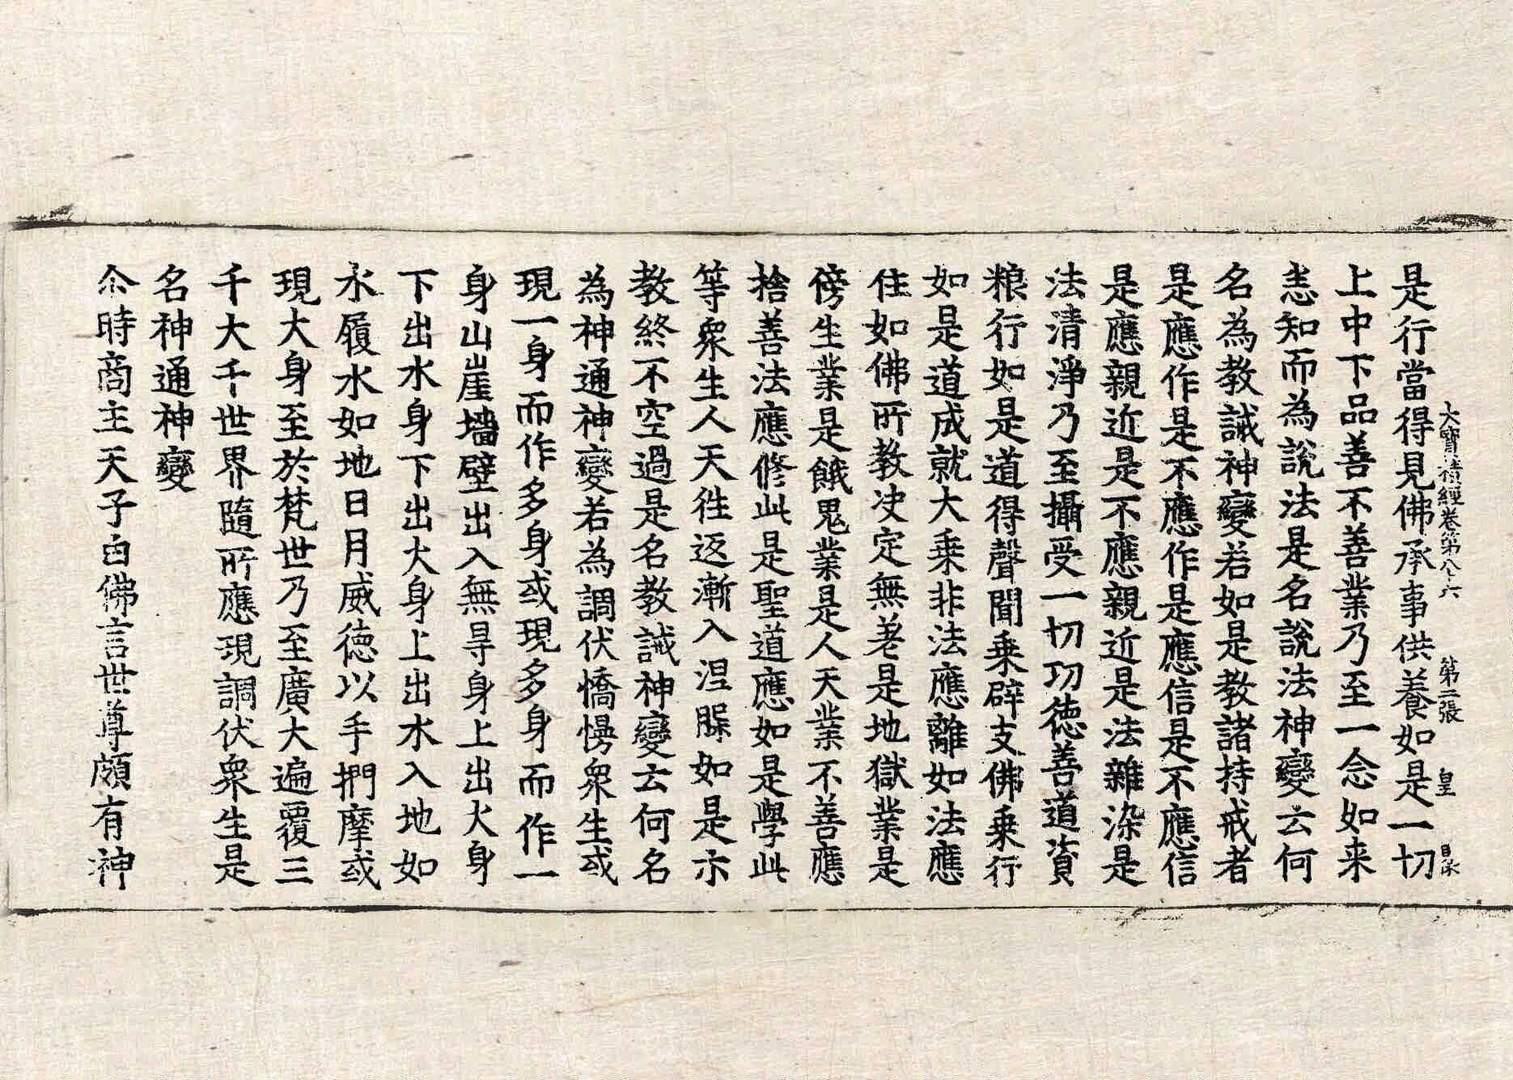 大寶積經卷第八十六 第二張 皇
是行當得見佛承事供養如是一切
上中下品善不善業乃至一念如来
悉知而為說法是名說法神變云何
名為教誡神變若如是教諸持戒者
是應作是不應作是應信是不應信
是應親近是不應親近是法雜染是
法清淨乃至攝受一切功徳善道資
粮行如是道得聲聞乗辟支佛乗行
如是道成就大乗非法應離如法應
住如佛所教决定無差是地獄業是
傍生業是餓鬼業是人天業不善應
捨善法應修此是聖道應如是學此
等衆生人天徃返漸入涅槃如是示
教終不空過是名教誡神變云何名
為神通神變若為調伏憍慢衆生或
現一身而作多身或現多身而作一
身山崖墻壁出入無㝵身上出火身
下出水身下出火身上出水入地如
水履水如地日月威徳以手捫摩或
現大身至於梵世乃至廣大遍覆三
千大千世界隨所應現調伏衆生是
名神通神變
尒時商主天子白佛言世尊頗有神